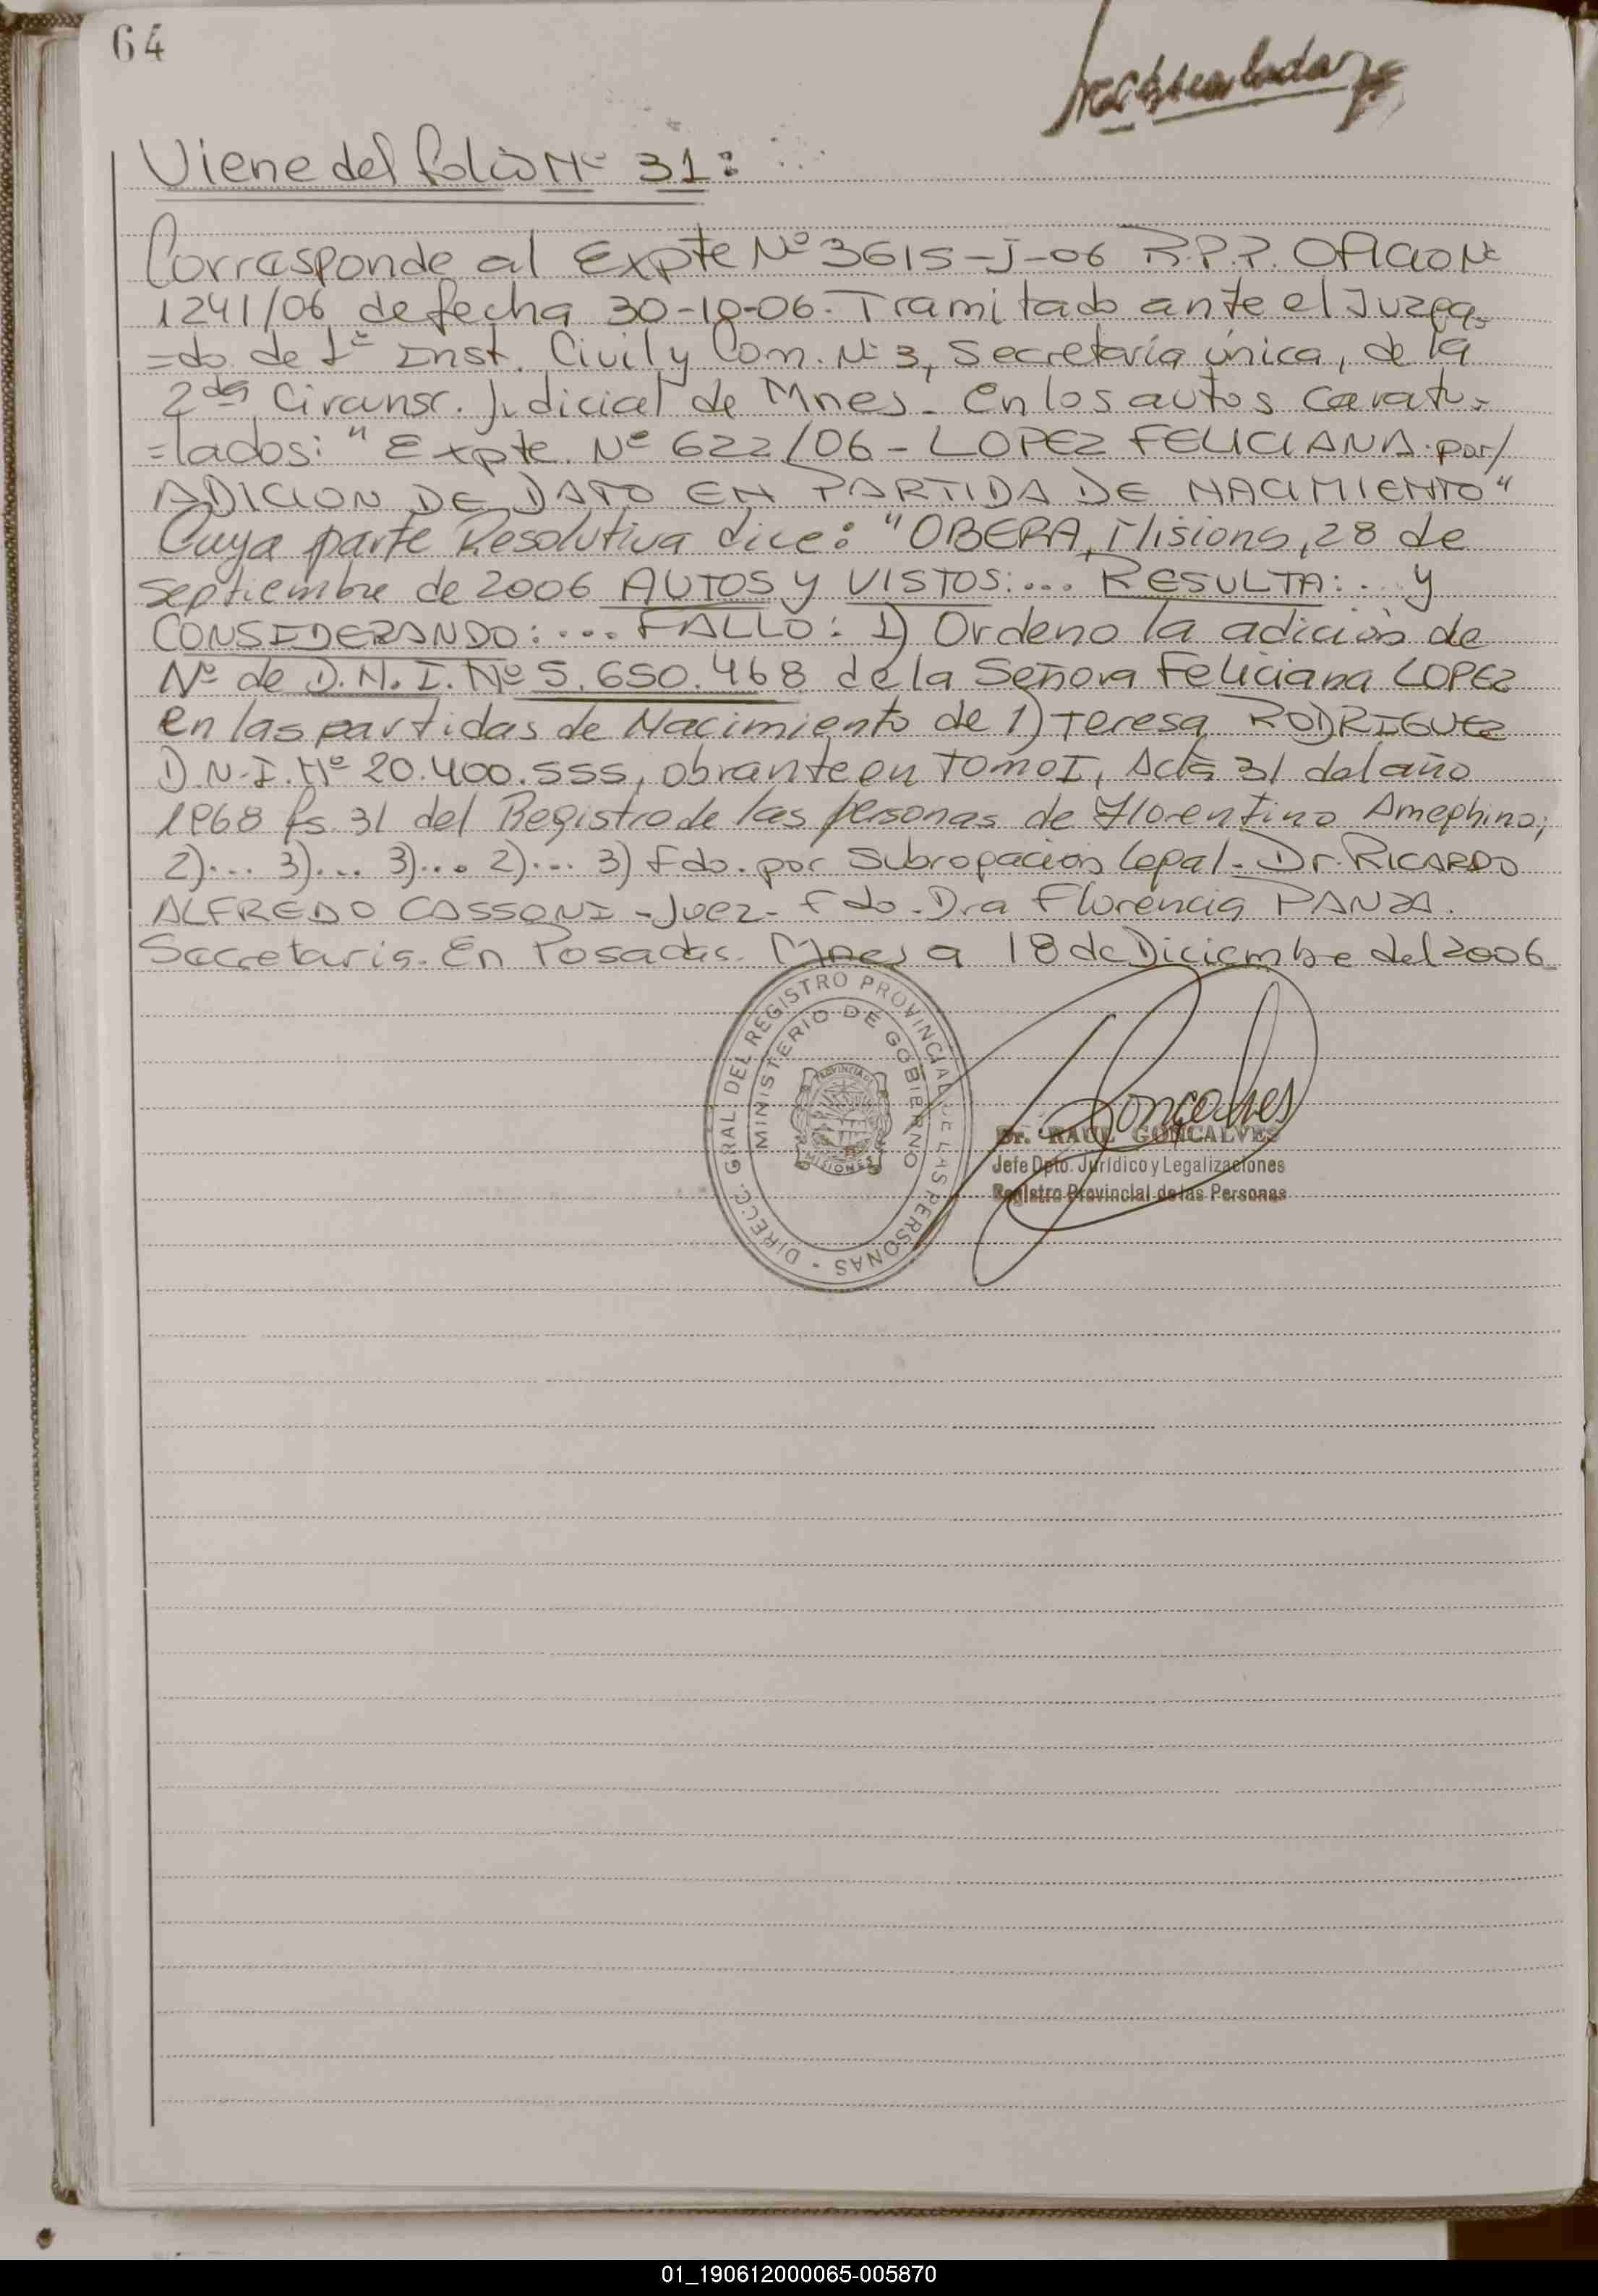 64
Viene del folio Nº 31:
Corresponde al Expte Nº 3615-J-06 R.P.P. OFICIO Nº
1241/06 de fecha 30-10-06. Tramitado ante el Juzga=
=do de 1ª Inst. Civil y Com. Nº 3, Secretaría única, de la
2da Circunsc. Judicial de Mnes. En los autos caratu=
=lados: "Expte. Nº 622/06 - LOPEZ FELICIANA por/
ADICION DE DATO EN PARTIDA DE NACIMIENTO"
Cuya parte Resolutiva dice: "OBERA, Misiones, 28 de
septiembre de 2006 AUTOS y VISTOS:... RESULTA:.. y
CONSIDERANDO:.... FALLO: 1) Ordeno la adición de
Nº de D.N.I. Nº 5.650.468 de la Señora Feliciana LOPEZ
en las partidas de Nacimiento de 1) Teresa RODRIGUEZ
D.N.I. Nº 20.400.555, obrante en Tomo I, Acta 31 del año
1968 fs. 31 del Registro de las personas de Florentino Ameghino;
2)... 3)... 3)... 2)... 3) Fdo. por Subrogación Legal - Dr. RICARDO
ALFREDO CASSONI - Juez - Fdo. Dra Florencia PANZA.
Secretaria. En Posadas. Mnes a 18 de Diciembre del 2006
DIRECC. GRAL. DEL REGISTRO PROVINCIAL DE LAS PERSONAS
MINISTERIO DE GOBIERNO
PROVINCIA DE
MISIONES
Gonçalves
Dr. RAUL GONCALVES
Jefe Dpto. Jurídico y Legalizaciones
Registro Provincial de las Personas
01_190612000065-005870